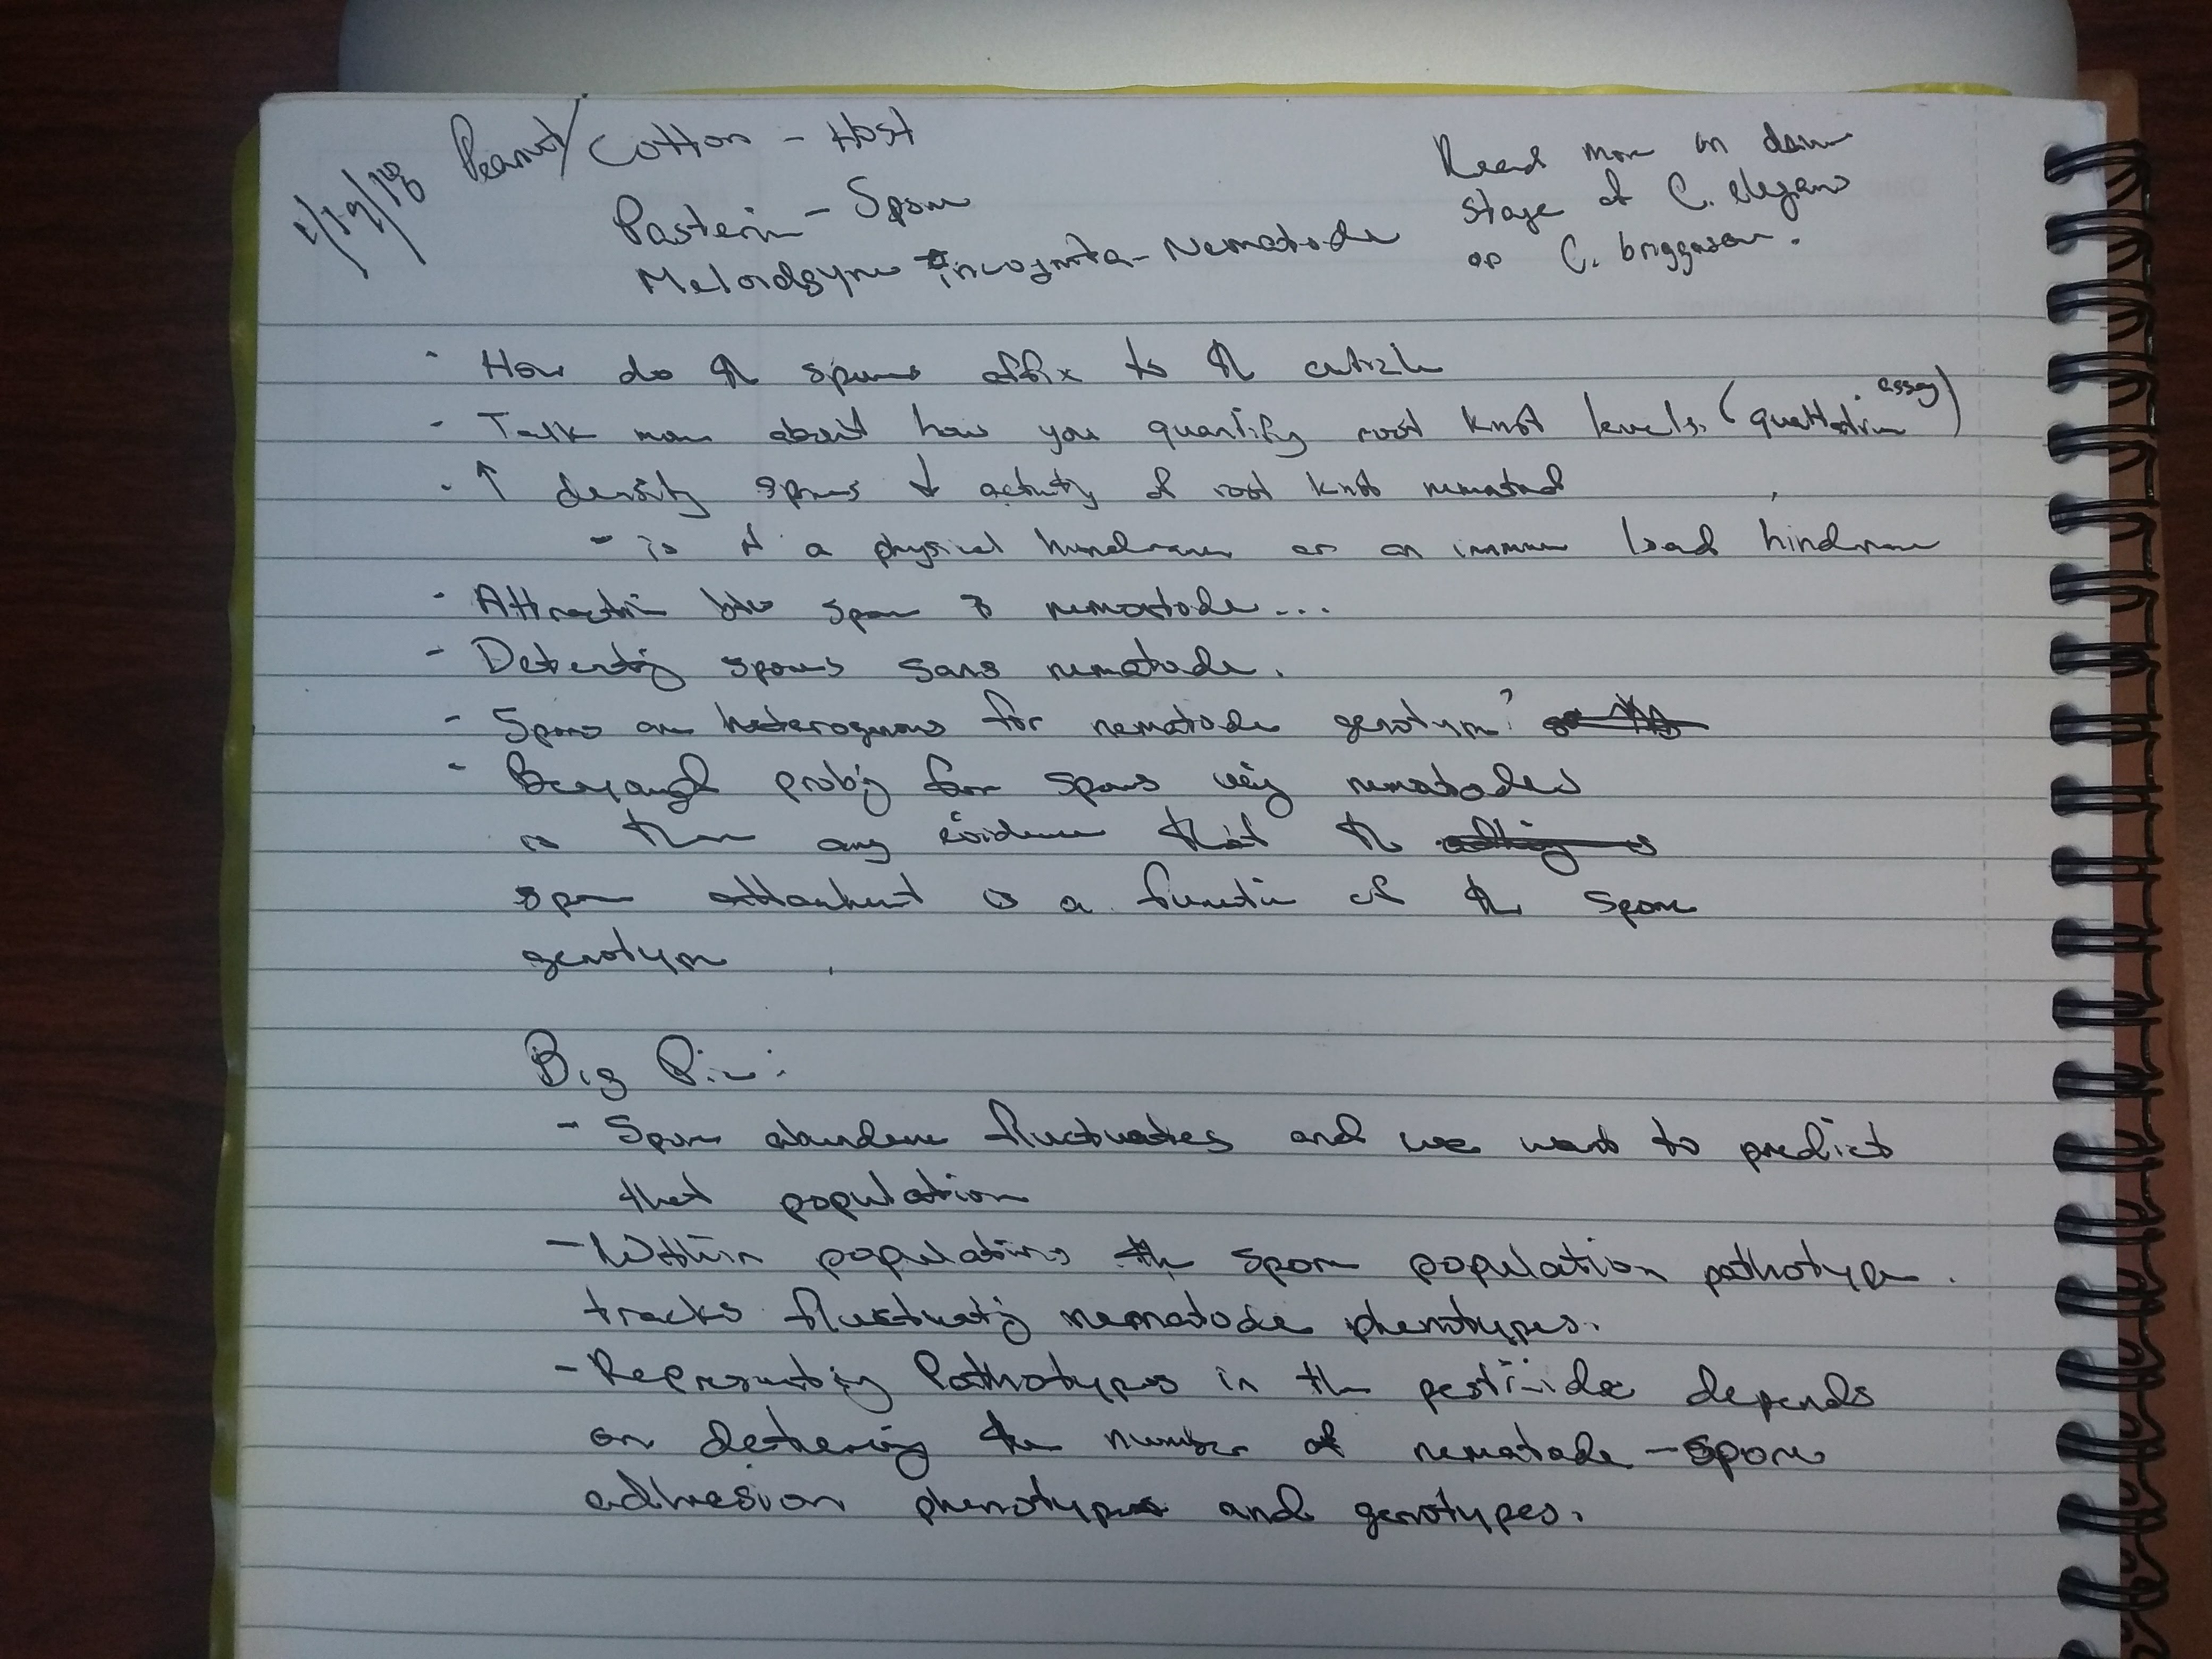 1/19/18
Peanut/Cotton - Host
Pasteuria - Spore
Meloidogyne incognita - Nematode
Need more on dauer
stage of C. elegans
or C. briggsae.
- How do the spores affix to the cuticle
- Talk more about how you quantify root knot levels. (quantitative assay)
- ↑ density spores ↓ activity of root knot nematode
- is it a physical hinderance or an immune based hinderance
- Attraction b/w spore & nematode ...
- Detecting spores sans nematode.
- Spores are heterogenous for nematode genotype?
- Beyond probing for spores using nematodes
is there any evidence that the
spore attachment is a function of the spore
genotype
Big Pic:
- Spore abundance fluctuates and we want to predict
that population
- Within populations the spore population pathotype
tracks fluctuating nematode phenotypes.
- Representing Pathotypes in the pesticide depends
on deciphering the number of nematode - spore
adhesion phenotypes and genotypes.